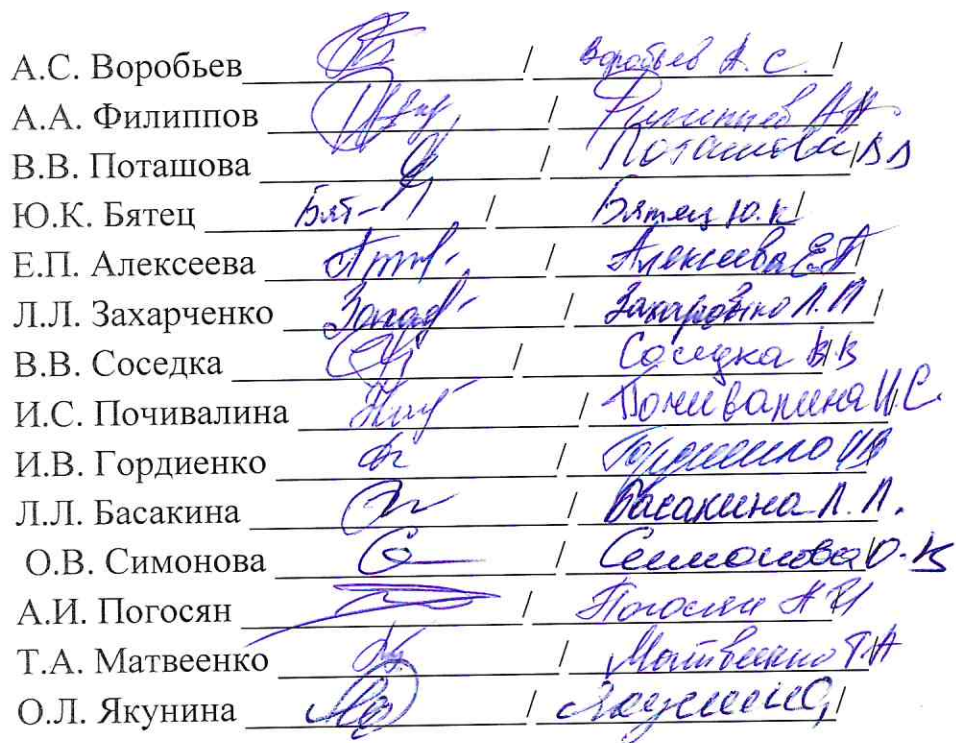 А.С. Воробьев / Воробьев А.С. /
А.А. Филиппов / Филиппов А А
В.В. Поташова / Поташова В В
Ю.К. Бятец Бят- / Бятец Ю.К /
Е.П. Алексеева / Алексеева Е.П /
Л.Л. Захарченко / Захарченко Л.Л /
В.В. Соседка / Соседка В.В
И.С. Почивалина / Почивалина И.С.
И.В. Гордиенко / Гордиенко ИВ
Л.Л. Басакина / Басакина Л.Л.
О.В. Симонова / Симонова О.В
А.И. Погосян / Погосян А И
Т.А. Матвеенко / Матвеенко Т.А
О.Л. Якунина / /